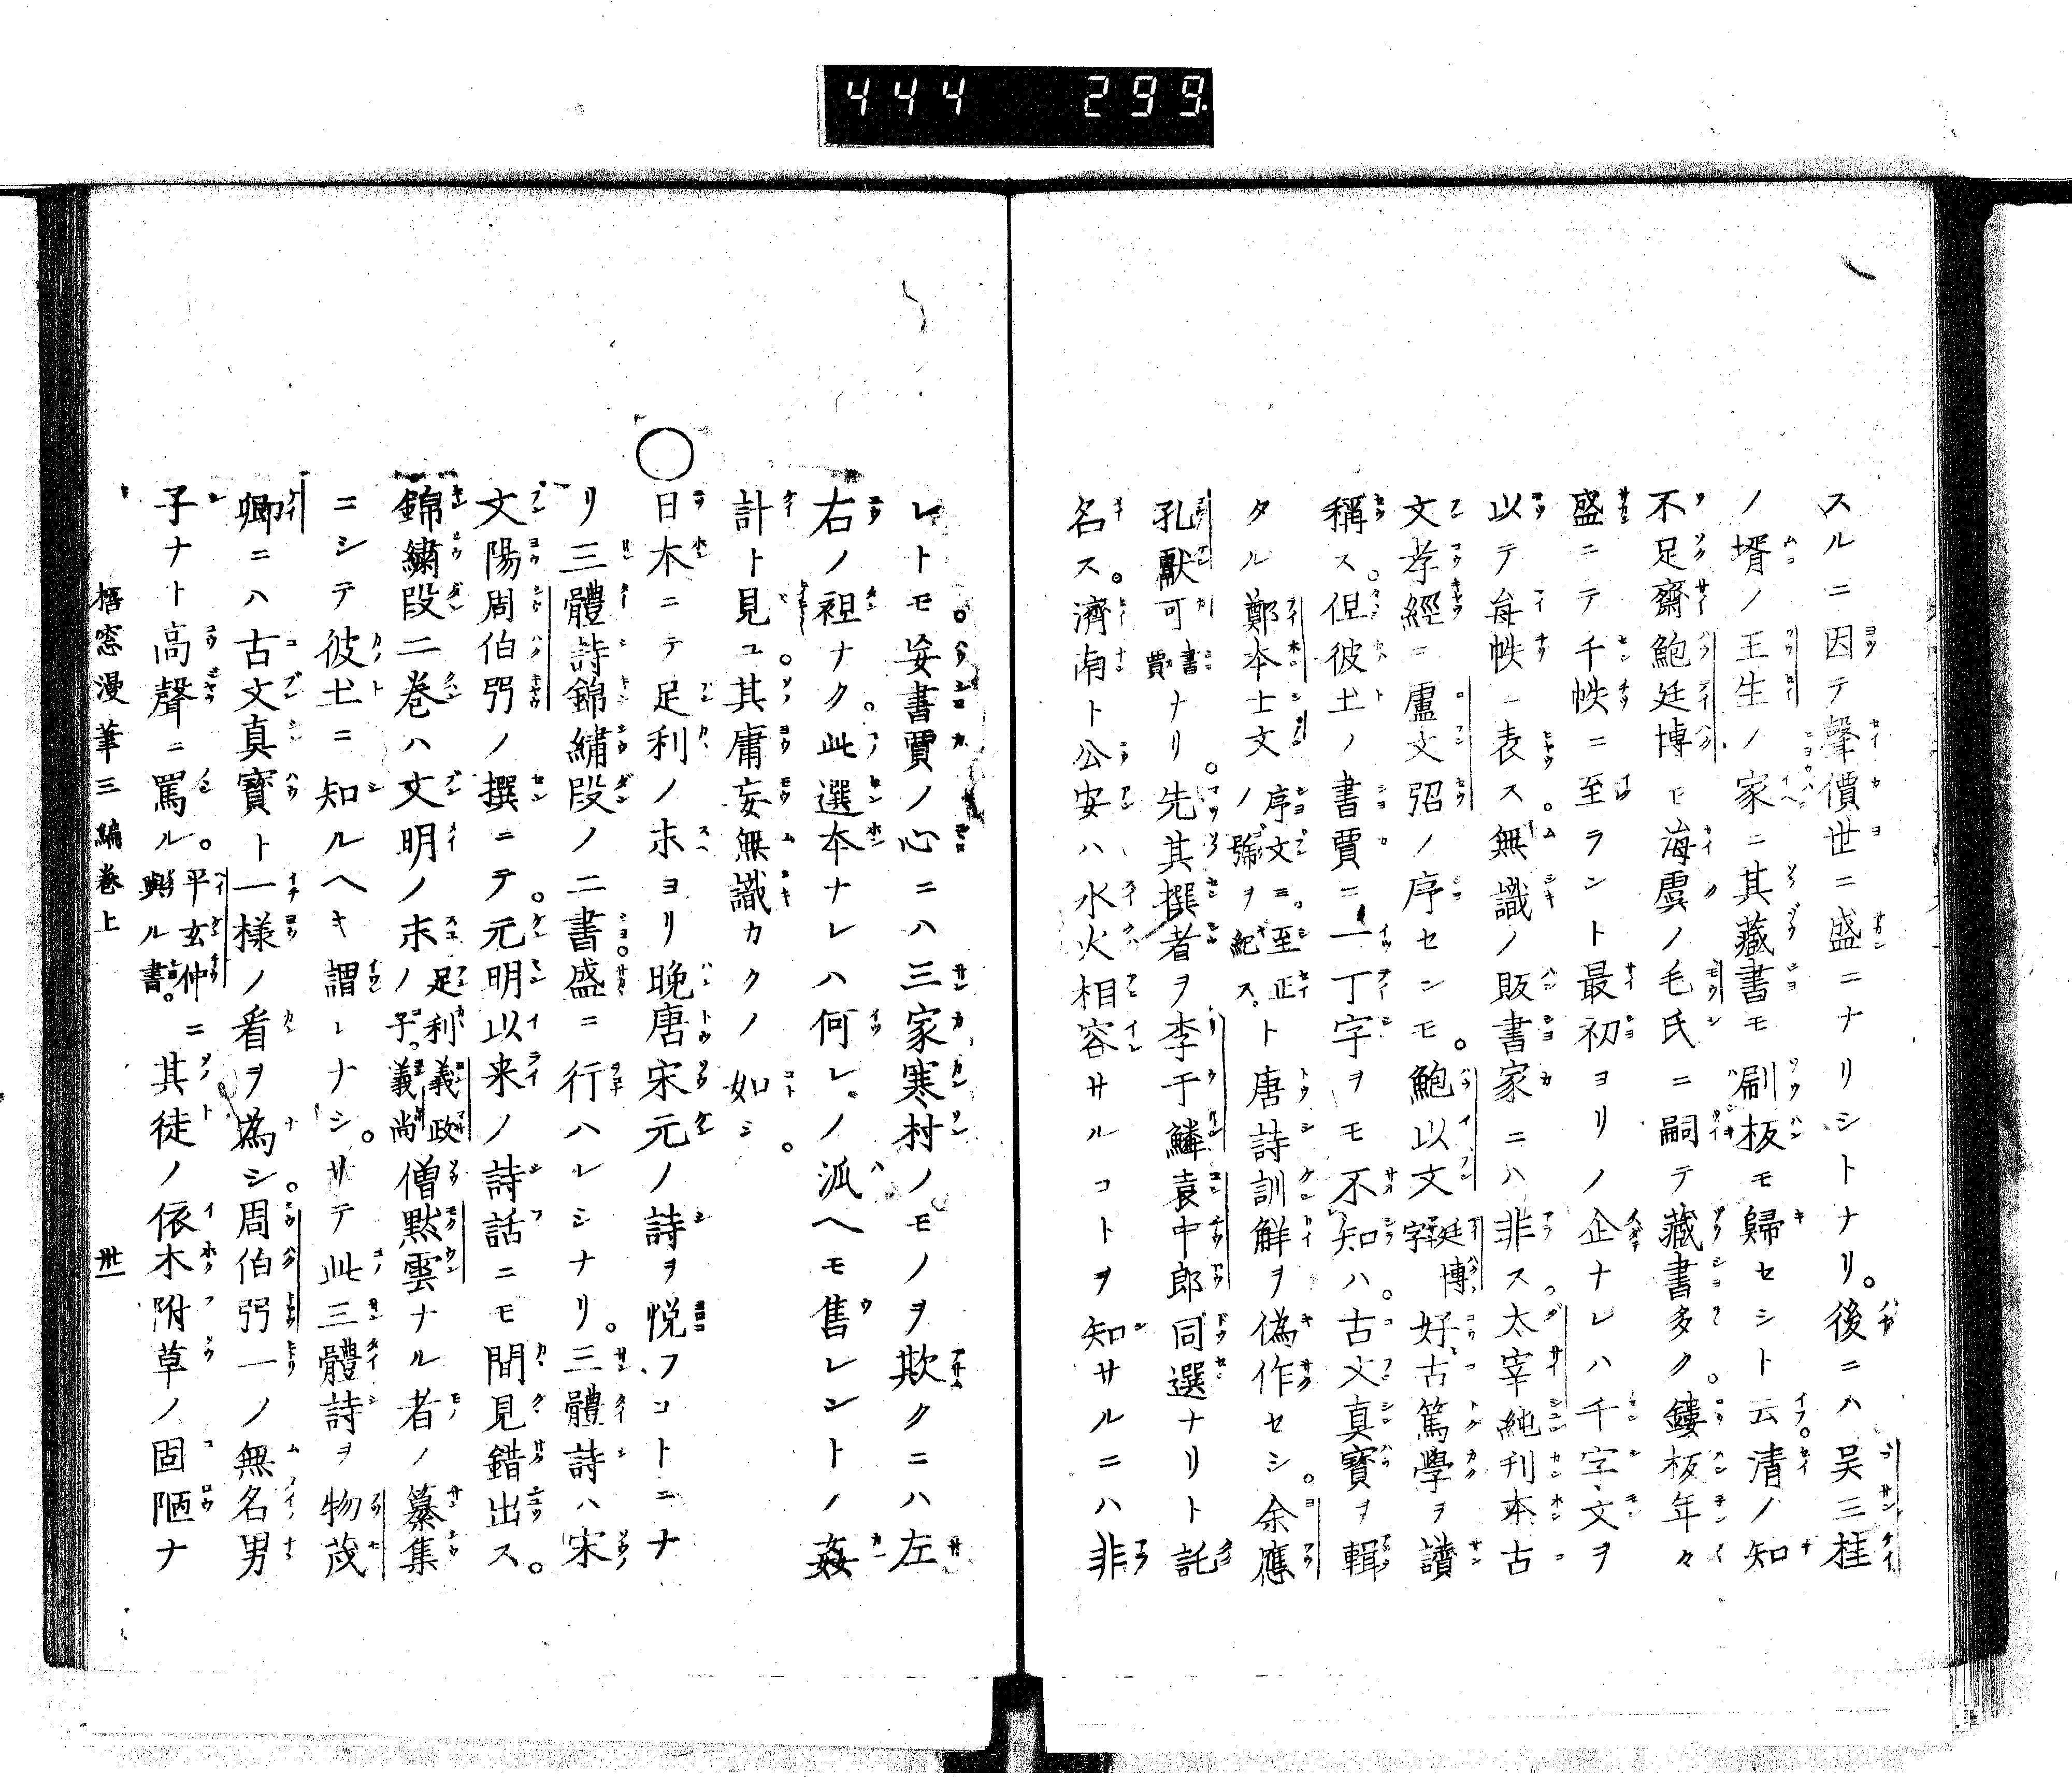 444 299.
スルニ因テ聲價世ニ盛ニナリシトナリ。後ニハ吴三桂
ノ壻ノ王生ノ家ニ其藏書モ刷板モ歸セシト云。清ノ知
不足齋鮑廷博モ海虞ノ毛氏ニ嗣テ藏書多ク。鏤板年々
盛ニテ千帙ニ至ラント最初ヨリノ企ナレハ千字文ヲ
以テ每帙ニ表ス。無識ノ販書家ニハ非ス。太宰純刊本古
文孝經ニ盧文弨ノ序セシモ。鮑以文廷博字好古篤學ヲ讃
稱ス。但彼土ノ書賈ニ一丁字ヲモ不知ハ。古文真寶ヲ輯
タル鄭本士文序文ニ。至正ノ號ヲ紀ス。ト唐詩訓解ヲ偽作セシ。余應
孔獻可書賈ナリ。先其撰者ヲ李于鱗袁中郎同選ナリト託
名ス。濟南ト公安ハ水火相容サルコトヲ知サルニハ非
レトモ。妄書賈ノ心ニハ三家寒村ノモノヲ欺クニハ左
右ノ袒ナク。此選本ナレハ何レノ派ヘモ售レントノ姦
計ト見ユ。其庸妄無識カクノ如シ。
◯日本ニテ足利ノ末ヨリ晩唐宋元ノ詩ヲ悦フコトニナ
リ三體詩錦繡段ノ二書。盛ニ行ハレシナリ。三體詩ハ宋
文陽周伯弜ノ撰ニテ。元明以来ノ詩話ニモ間見錯出ス。
錦繡段二巻ハ文明ノ末ノ足利義政子。義尚僧默雲ナル者ノ纂集
ニシテ彼土ニ知ルヘキ謂レナシ。サテ此三體詩ヲ物茂
卿ニハ古文真寶ト一様ノ看ヲ為シ。周伯弜一ノ無名男
子ナト高聲ニ罵ル。平玄仲ニ與ル書。其徒ノ依木附草ノ固陋ナ
梧窓漫筆三編巻上 卅一